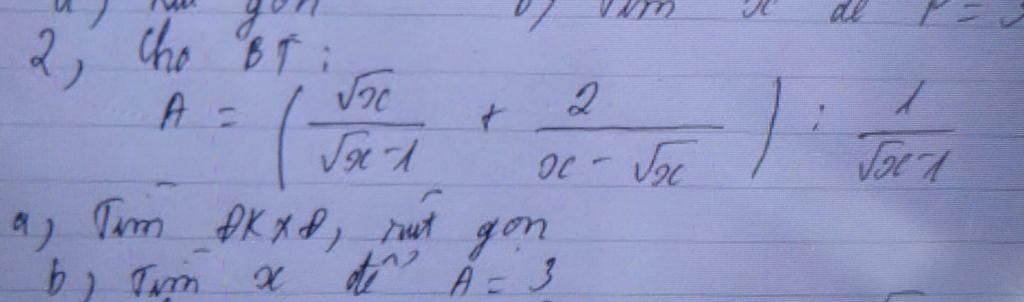 a) rút gọn b) Tìm x để P = 3
2, Cho BT:
A = ( √x / (√x - 1) + 2 / (x - √x) ) : 1 / (√x - 1)
a) Tìm ĐKXĐ, rút gọn
b) Tìm x để A = 3